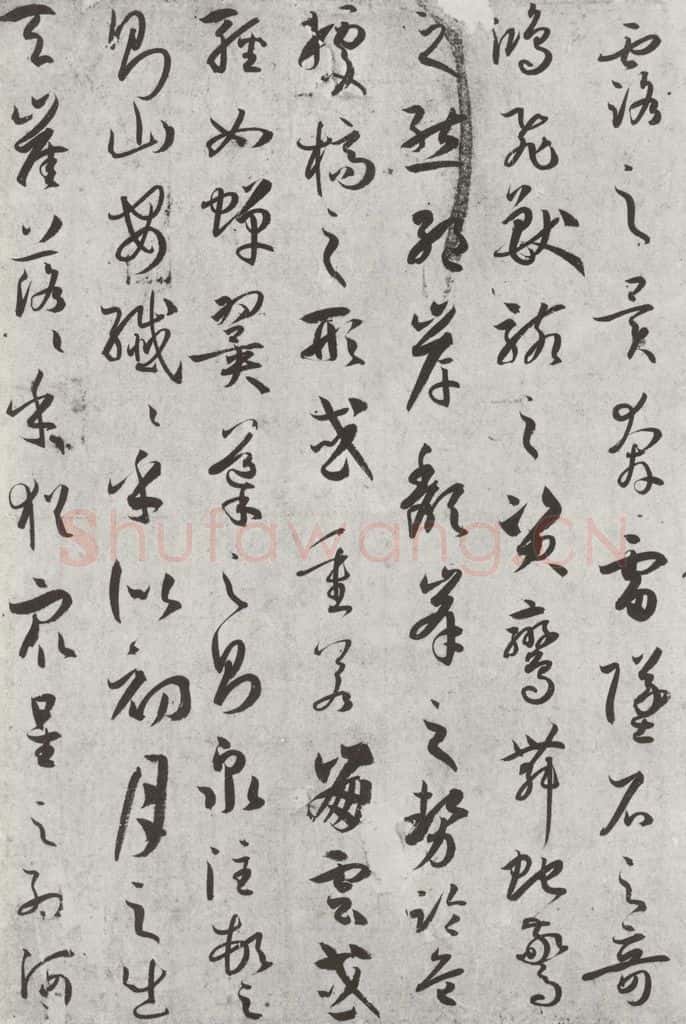 露之異奔雷墜石之奇
鴻飛獸駭之資鸞舞蛇驚
之態絕岸頹峯之勢臨危
據槁之形或重若崩雲或
輕如蟬翼導之則泉注頓之
則山安纖〻乎似初月之出
天崖落〻乎猶衆星之列河
Shufawang.CN